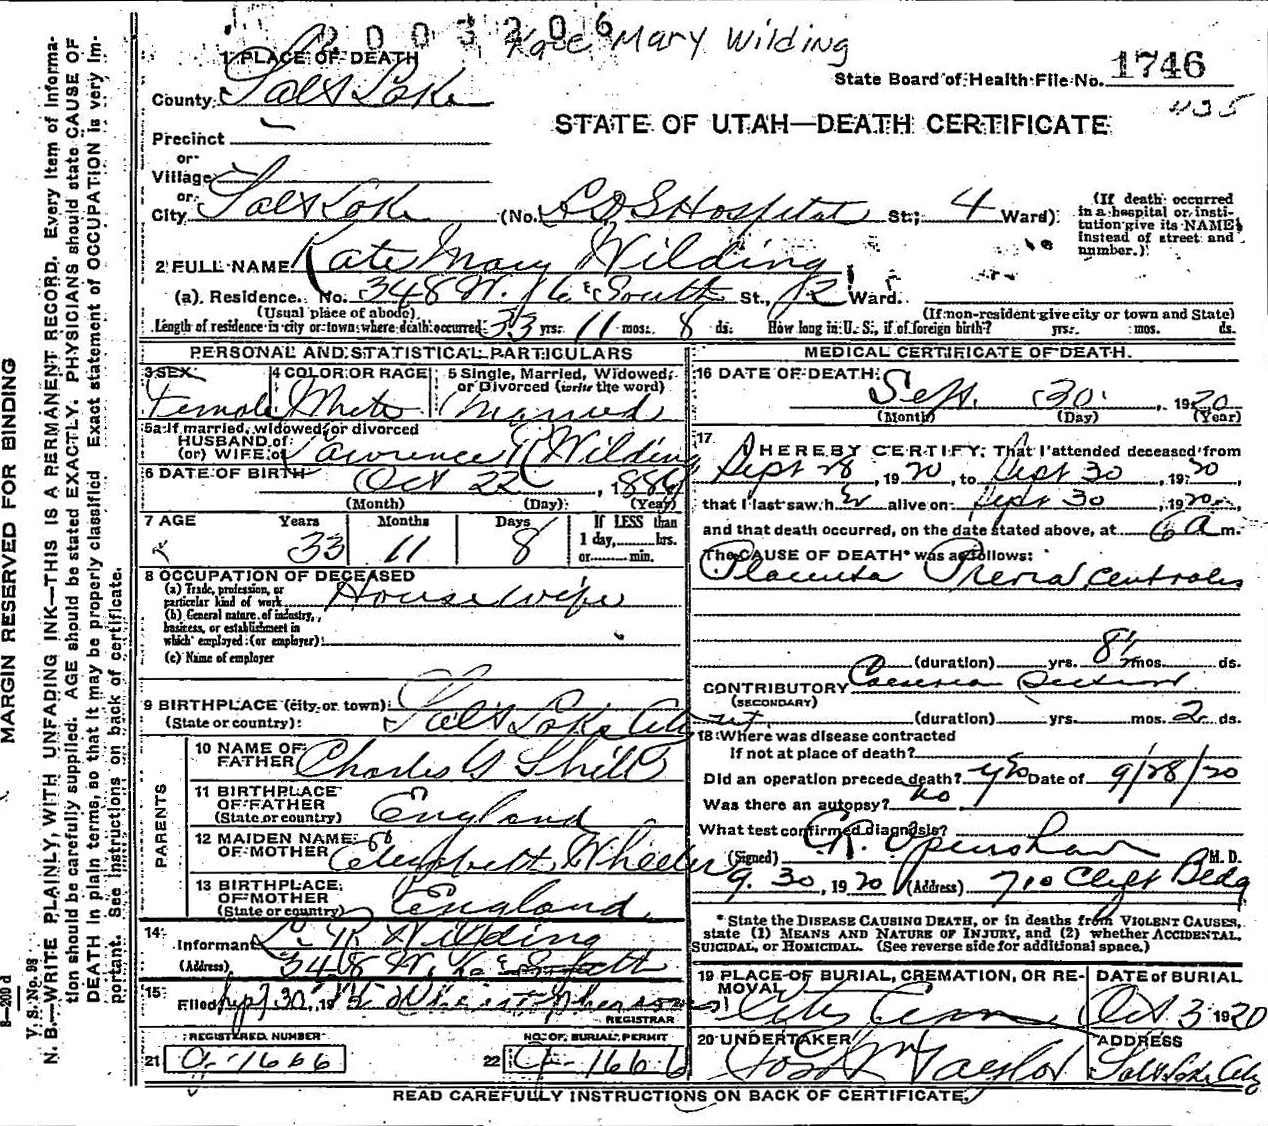 2003206
Kate Mary Wilding
1 PLACE OF DEATH
State Board of Health File No. 1746
435
County Salt Lake
STATE OF UTAH—DEATH CERTIFICATE
Precinct
or
Village
or
City Salt Lake (No. L D S Hospital St; 4 Ward)
(If death occurred in a hospital or institution give its NAME instead of street and number.)
2 FULL NAME Kate Mary Wilding
(a) Residence. No. 348 W. 6th South St., 12 Ward.
(Usual place of abode) (If non-resident give city or town and State)
Length of residence in city or town where death occurred 33 yrs. 11 mos. 8 ds. How long in U. S., if of foreign birth? yrs. mos. ds.
PERSONAL AND STATISTICAL PARTICULARS
3 SEX Female
4 COLOR OR RACE White
5 Single, Married, Widowed, or Divorced (write the word) Married
5a If married, widowed, or divorced
HUSBAND of
(or) WIFE of Lawrence R Wilding
6 DATE OF BIRTH Oct 22, 1886
(Month) (Day) (Year)
7 AGE Years Months Days If LESS than
33 11 8 1 day, hrs.
or min.
8 OCCUPATION OF DECEASED
(a) Trade, profession, or particular kind of work Housewife
(b) General nature of industry, business, or establishment in which employed (or employer)
(c) Name of employer
9 BIRTHPLACE (city or town) Salt Lake City
(State or country) ut
PARENTS
10 NAME OF FATHER Charles G
11 BIRTHPLACE OF FATHER (State or country) England
12 MAIDEN NAME OF MOTHER Elizabeth Wheeler
13 BIRTHPLACE OF MOTHER (State or country) England
14 Informant L. R Wilding
(Address) 348 W. 6 South
15 Filed Sept 30, 19
REGISTRAR
REGISTERED NUMBER
21 A-1666
NO. OF BURIAL PERMIT
22 A-1666
MEDICAL CERTIFICATE OF DEATH
16 DATE OF DEATH Sept. 30, 1920
(Month) (Day) (Year)
17 I HEREBY CERTIFY, That I attended deceased from
Sept 28, 1920, to Sept 30, 1920
that I last saw her alive on Sept 30, 1920
and that death occurred, on the date stated above, at 6 a m.
The CAUSE OF DEATH* was as follows:
Placenta Previa Centralis
(duration) yrs. 8½ mos. ds.
CONTRIBUTORY Caesarian Section
(SECONDARY)
(duration) yrs. mos. 2 ds.
18 Where was disease contracted
If not at place of death?
Did an operation precede death? yes Date of 9/28/20
Was there an autopsy? no
What test confirmed diagnosis?
(Signed) C.R. Openshaw M. D.
9.30, 1920 (Address) 710 Clift Bldg
* State the DISEASE CAUSING DEATH, or in deaths from VIOLENT CAUSES, state (1) MEANS AND NATURE OF INJURY, and (2) whether ACCIDENTAL, SUICIDAL, or HOMICIDAL. (See reverse side for additional space.)
19 PLACE OF BURIAL, CREMATION, OR REMOVAL City Cem
DATE of BURIAL Oct 3 1920
20 UNDERTAKER Jos Wm Taylor
ADDRESS Salt Lake City
READ CAREFULLY INSTRUCTIONS ON BACK OF CERTIFICATE.
MARGIN RESERVED FOR BINDING
V. S. No. 98
N. B.—WRITE PLAINLY, WITH UNFADING INK—THIS IS A PERMANENT RECORD. Every item of information should be carefully supplied. AGE should be stated EXACTLY. PHYSICIANS should state CAUSE OF DEATH in plain terms, so that it may be properly classified. Exact statement of OCCUPATION is very important. See instructions on back of certificate.